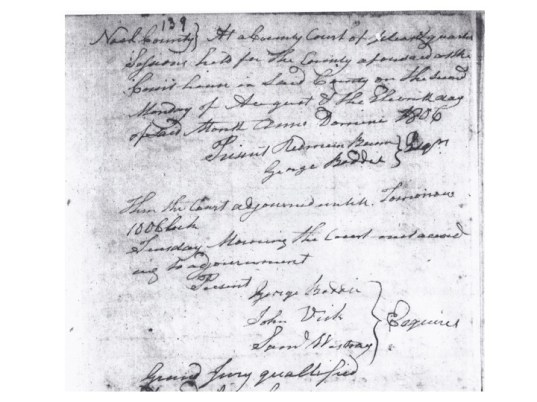 139
Nash County } At a County Court of pleas & quarter
Sessions held for the County aforesaid at the
Court house in Said County on the Second
Monday of August & the Eleventh day
of Said Month Anno Domini 1806
Present Redmun Bunn } Esqrs
George Boddie
Then the Court adjourned until Tomorrow
10 OClock
Tuesday Morning the Court met accord
ing to adjournment
Present
George Boddie
John Vick } Esquires
Saml Westray
Grand Jury quallified